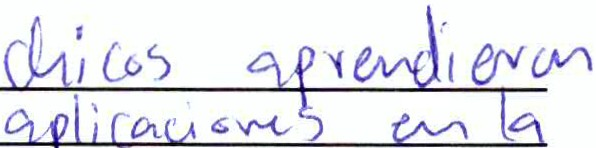 chicos aprendieron
aplicaciones en la